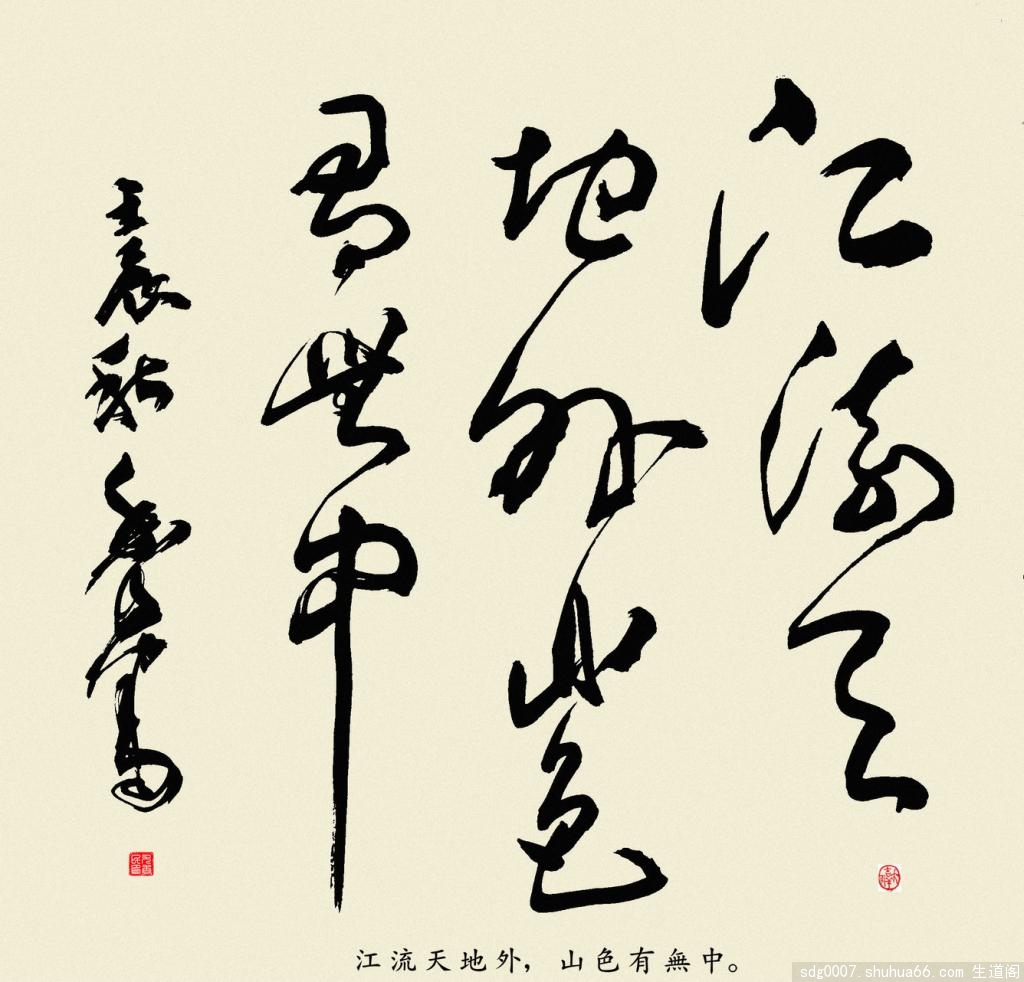 江流天
地外山色
有無中
壬辰秋
江流天地外，山色有無中。
sdg0007.shuhua66.com 生道阁